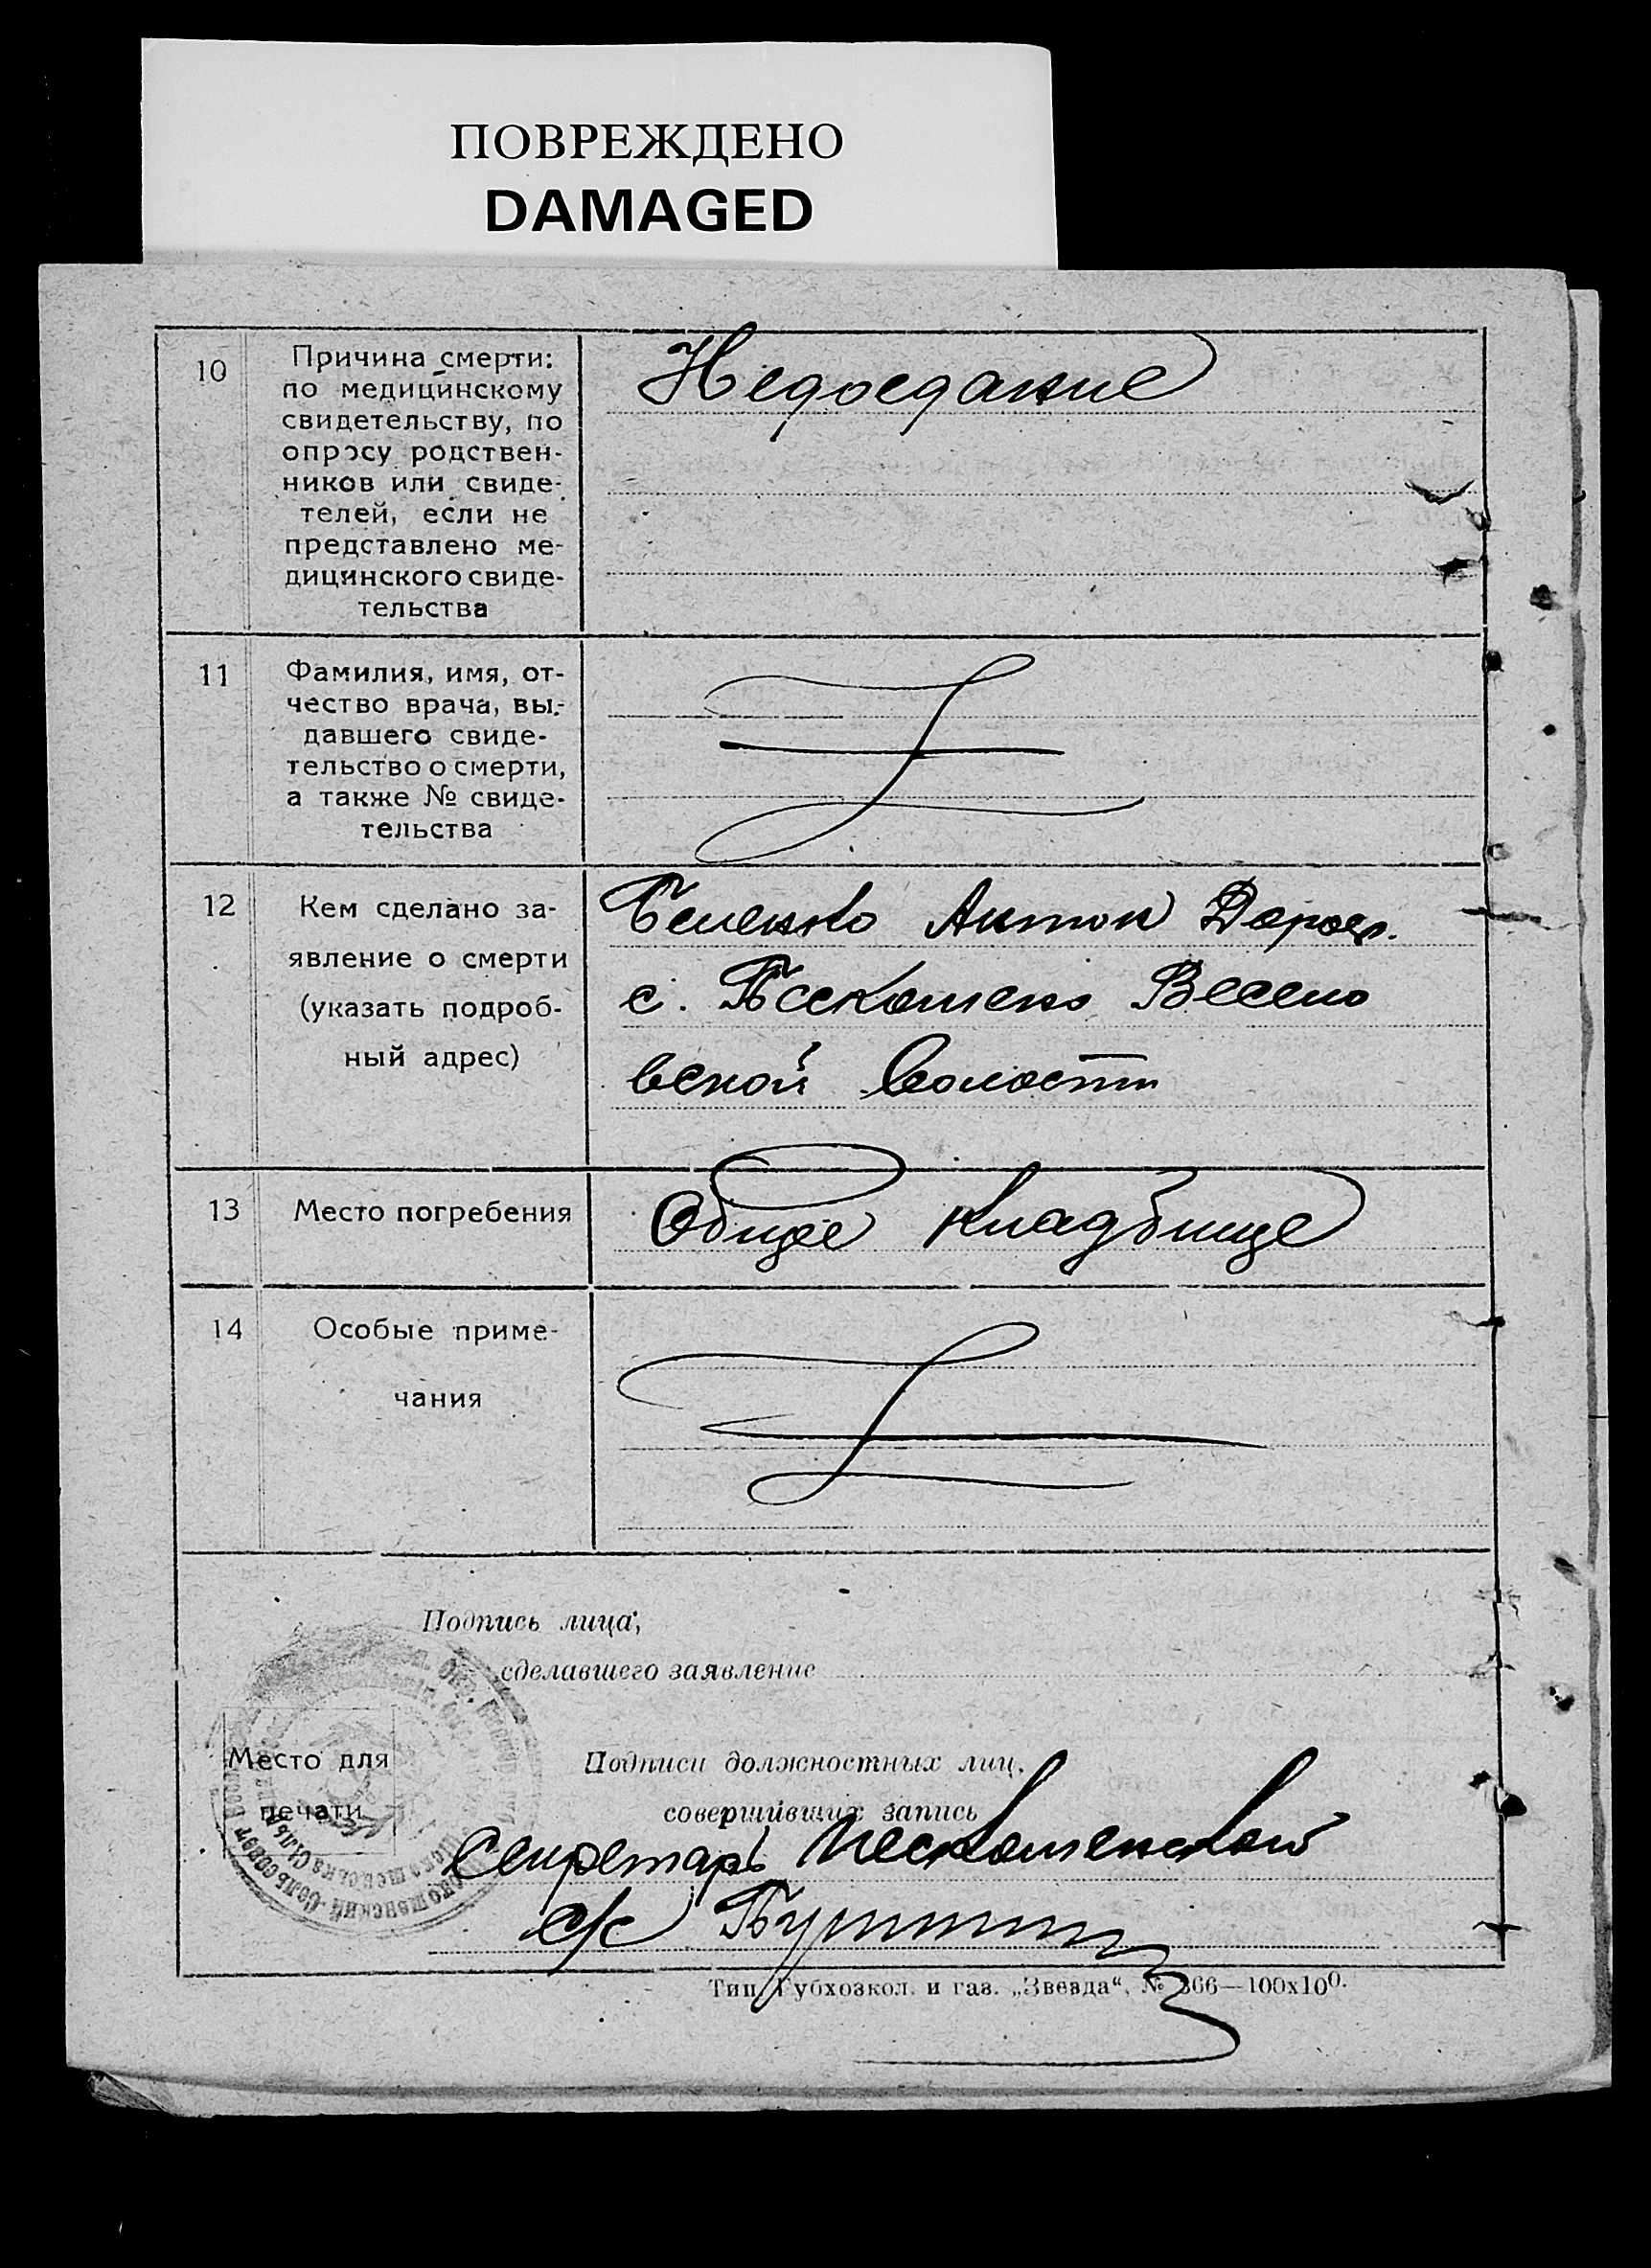 ПОВРЕЖДЕНО
DAMAGED
10
Причина смерти:
по медицинскому
свидетельству, по
опросу родствен-
ников или свиде-
телей, если не
представлено ме-
дицинского свиде-
тельства
Недоедание
11
Фамилия, имя, от-
чество врача, вы-
давшего свиде-
тельство о смерти,
а также № свиде-
тельства
12
Кем сделано за-
явление о смерти
(указать подроб-
ный адрес)
Беленко Антон Дороф.
с. Пескошено Весело
вской волости
13
Место погребения
Общее кладбище
14
Особые приме-
чания
Подпись лица,
сделавшего заявление
Место для
печати
Подписи должностных лиц,
совершивших запись
Секретарь Пескошенской
с/с
Тип. Губхозкол. и газ. „Звезда“, № 366—100х100.